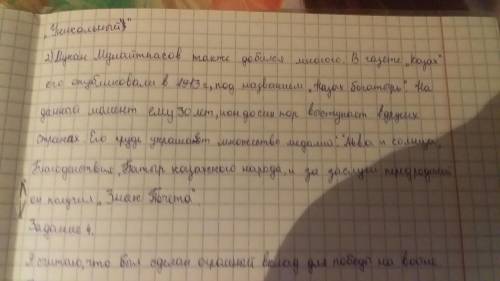 „Уникальный"
2) Мукан Мунайтпасов также добился многого. В газете „Казах"
его опубликовали в 1913 г., под названием „Казах богатырь" На
данной момент ему 30 лет, и он до сих пор выступает в других
странах. Его грудь украшает множество медалей: „Льва и солнца,
Благоденствия, „Батыр казахского народа, и за заслуги перед родиной
он получил „Знак Почета".
Задание 4.
Я считаю, что был сделан огромной вклад для победы на войне